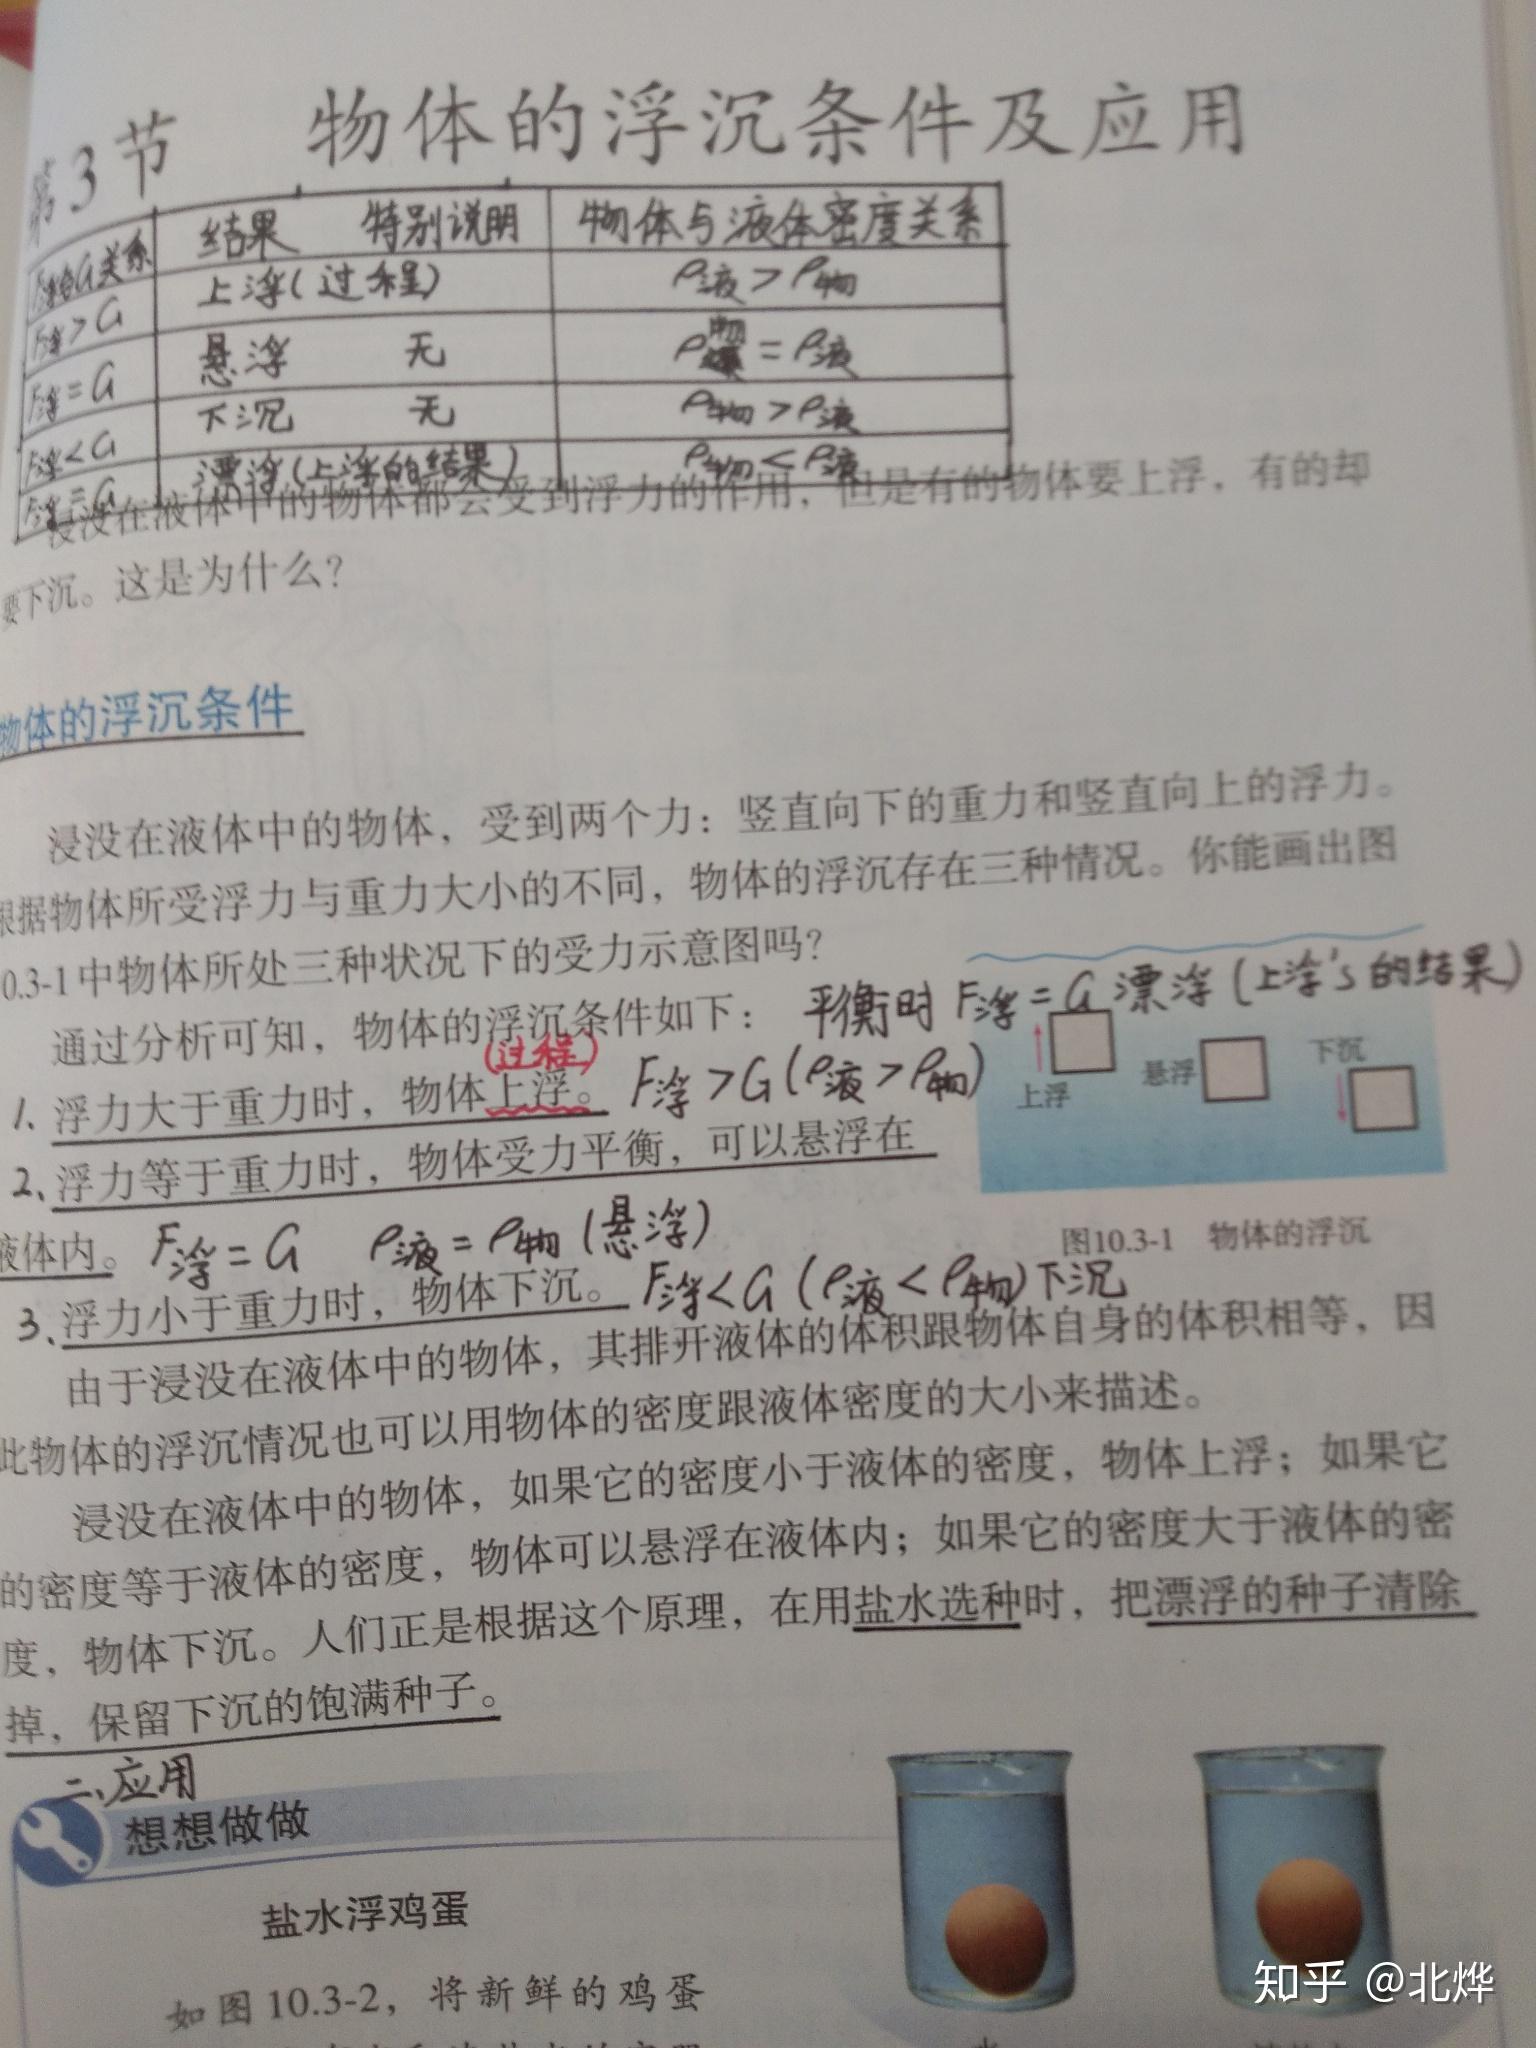 第3节 物体的浮沉条件及应用
F浮与G关系 结果 特别说明 物体与液体密度关系
F浮>G 上浮(过程) ρ液>ρ物
F浮=G 悬浮 无 ρ物=ρ液
F浮<G 下沉 无 ρ物>ρ液
F浮=G 漂浮(上浮的结果) ρ物<ρ液
浸没在液体中的物体都会受到浮力的作用，但是有的物体要上浮，有的却
要下沉。这是为什么？
物体的浮沉条件
浸没在液体中的物体，受到两个力：竖直向下的重力和竖直向上的浮力。
根据物体所受浮力与重力大小的不同，物体的浮沉存在三种情况。你能画出图
0.3-1中物体所处三种状况下的受力示意图吗？
通过分析可知，物体的浮沉条件如下：
平衡时 F浮=G 漂浮(上浮's的结果)
(过程)
1、浮力大于重力时，物体上浮。 F浮>G(ρ液>ρ物)
2、浮力等于重力时，物体受力平衡，可以悬浮在
液体内。 F浮=G ρ液=ρ物(悬浮)
3、浮力小于重力时，物体下沉。 F浮<G(ρ液<ρ物)下沉
上浮 悬浮 下沉
图10.3-1 物体的浮沉
由于浸没在液体中的物体，其排开液体的体积跟物体自身的体积相等，因
此物体的浮沉情况也可以用物体的密度跟液体密度的大小来描述。
浸没在液体中的物体，如果它的密度小于液体的密度，物体上浮；如果它
的密度等于液体的密度，物体可以悬浮在液体内；如果它的密度大于液体的密
度，物体下沉。人们正是根据这个原理，在用盐水选种时，把漂浮的种子清除
掉，保留下沉的饱满种子。
二、应用
想想做做
盐水浮鸡蛋
如图10.3-2，将新鲜的鸡蛋
知乎 @北烨